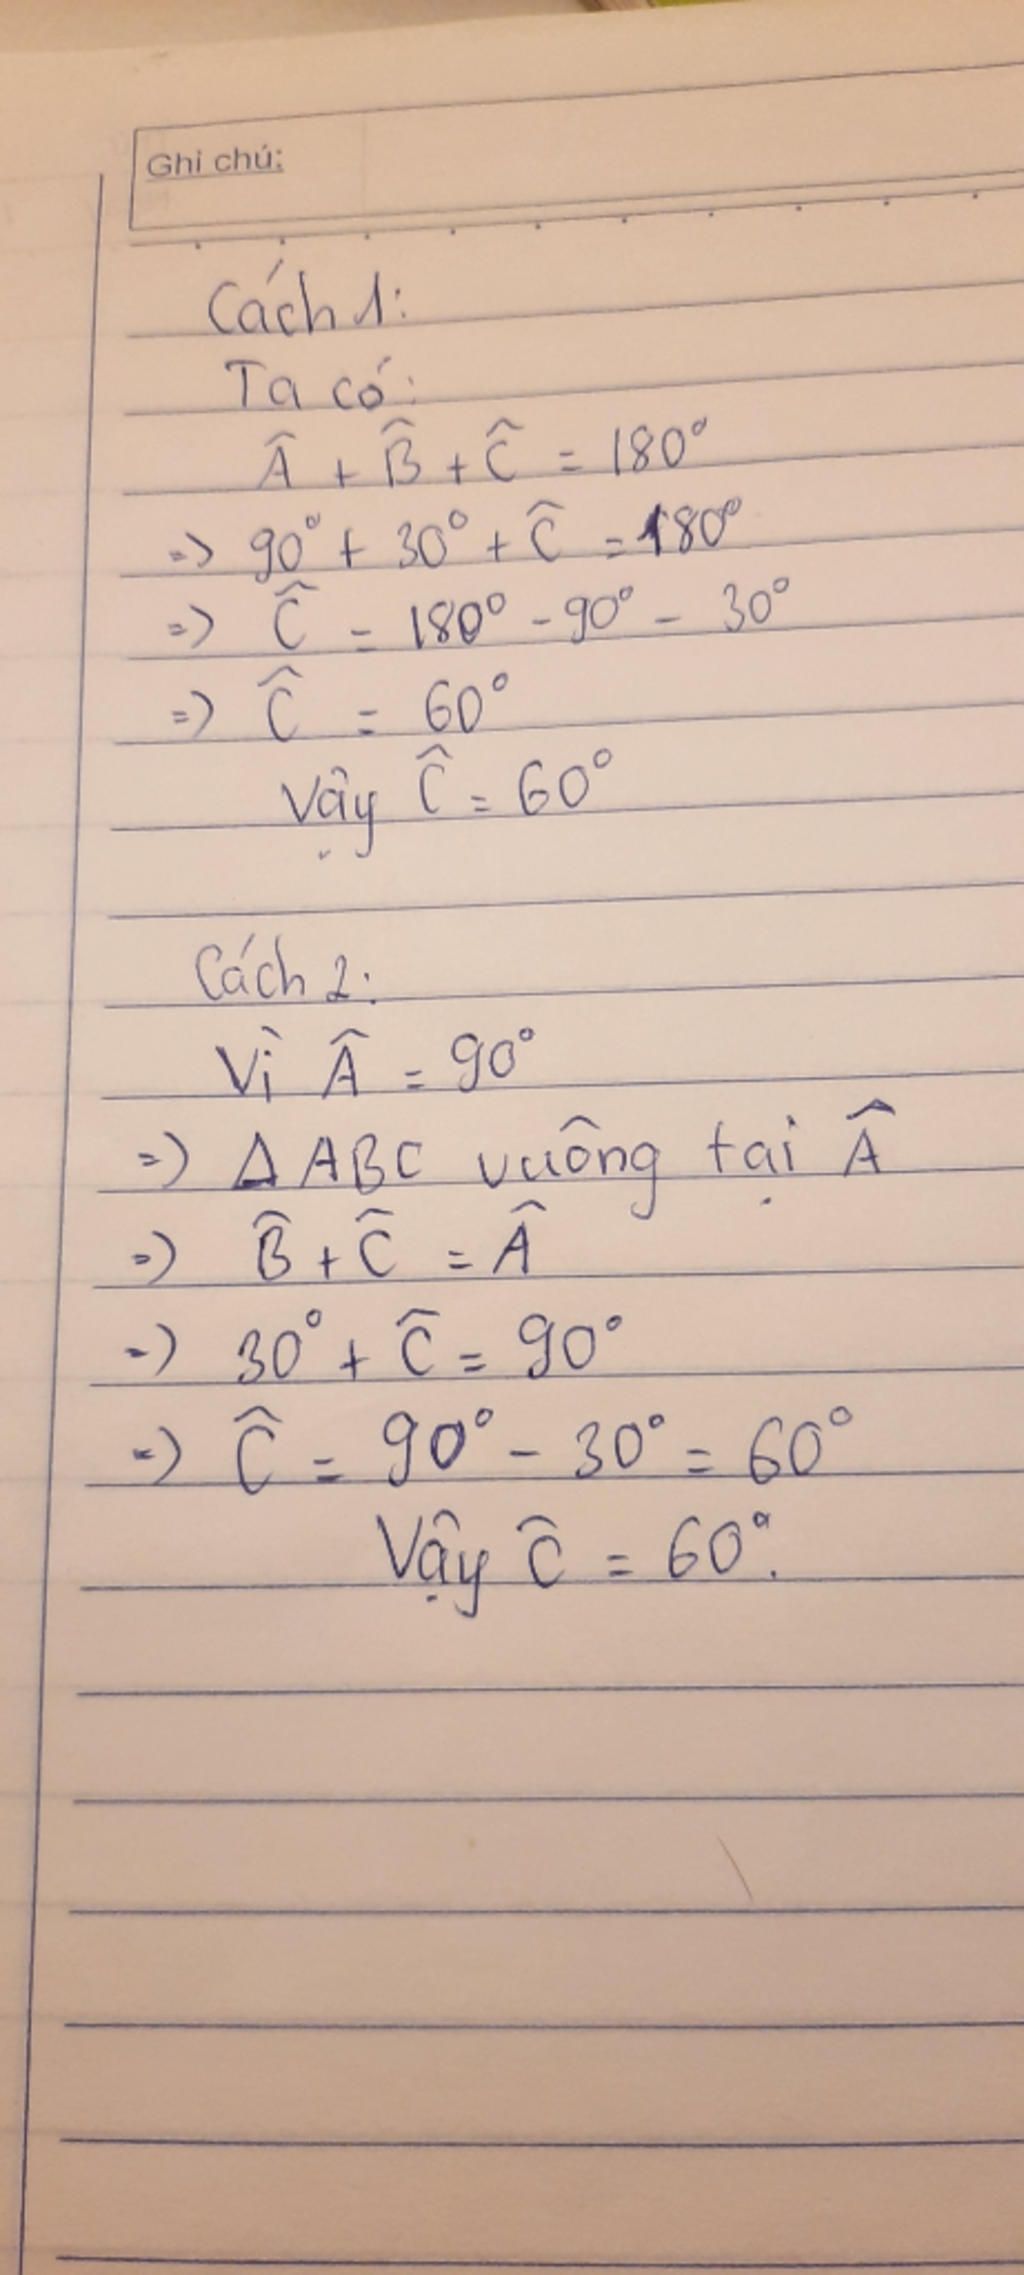 Ghi chú:
Cách 1:
Ta có:
Â + B̂ + Ĉ = 180°
=> 90° + 30° + Ĉ = 180°
=> Ĉ = 180° - 90° - 30°
=> Ĉ = 60°
Vậy Ĉ = 60°
Cách 2:
Vì Â = 90°
=> Δ ABC vuông tại Â
=> B̂ + Ĉ = Â
=> 30° + Ĉ = 90°
=> Ĉ = 90° - 30° = 60°
Vậy Ĉ = 60°.